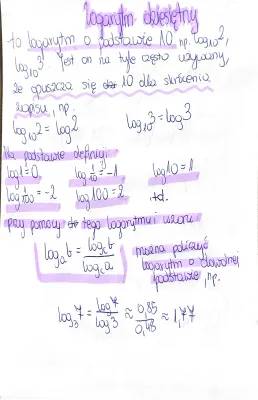 Logarytm dziesiętny
to logarytm o podstawie 10, np. log₁₀2,
log₁₀3. Jest on na tyle często używany,
że opuszcza się 10 dla skrócenia
zapisu, np.
log₁₀2 = log2 log₁₀3 = log3
Na podstawie definicji:
log1 = 0, log 1/10 = -1 log10 = 1
log 1/100 = -2 log100 = 2 itd.
przy pomocy tego logarytmu i wzoru:
logₐb = log_c b / log_c a
można policzyć
logarytm o dowolnej
podstawie, np.
log₃7 = log7 / log3 ≈ 0,85 / 0,48 ≈ 1,77